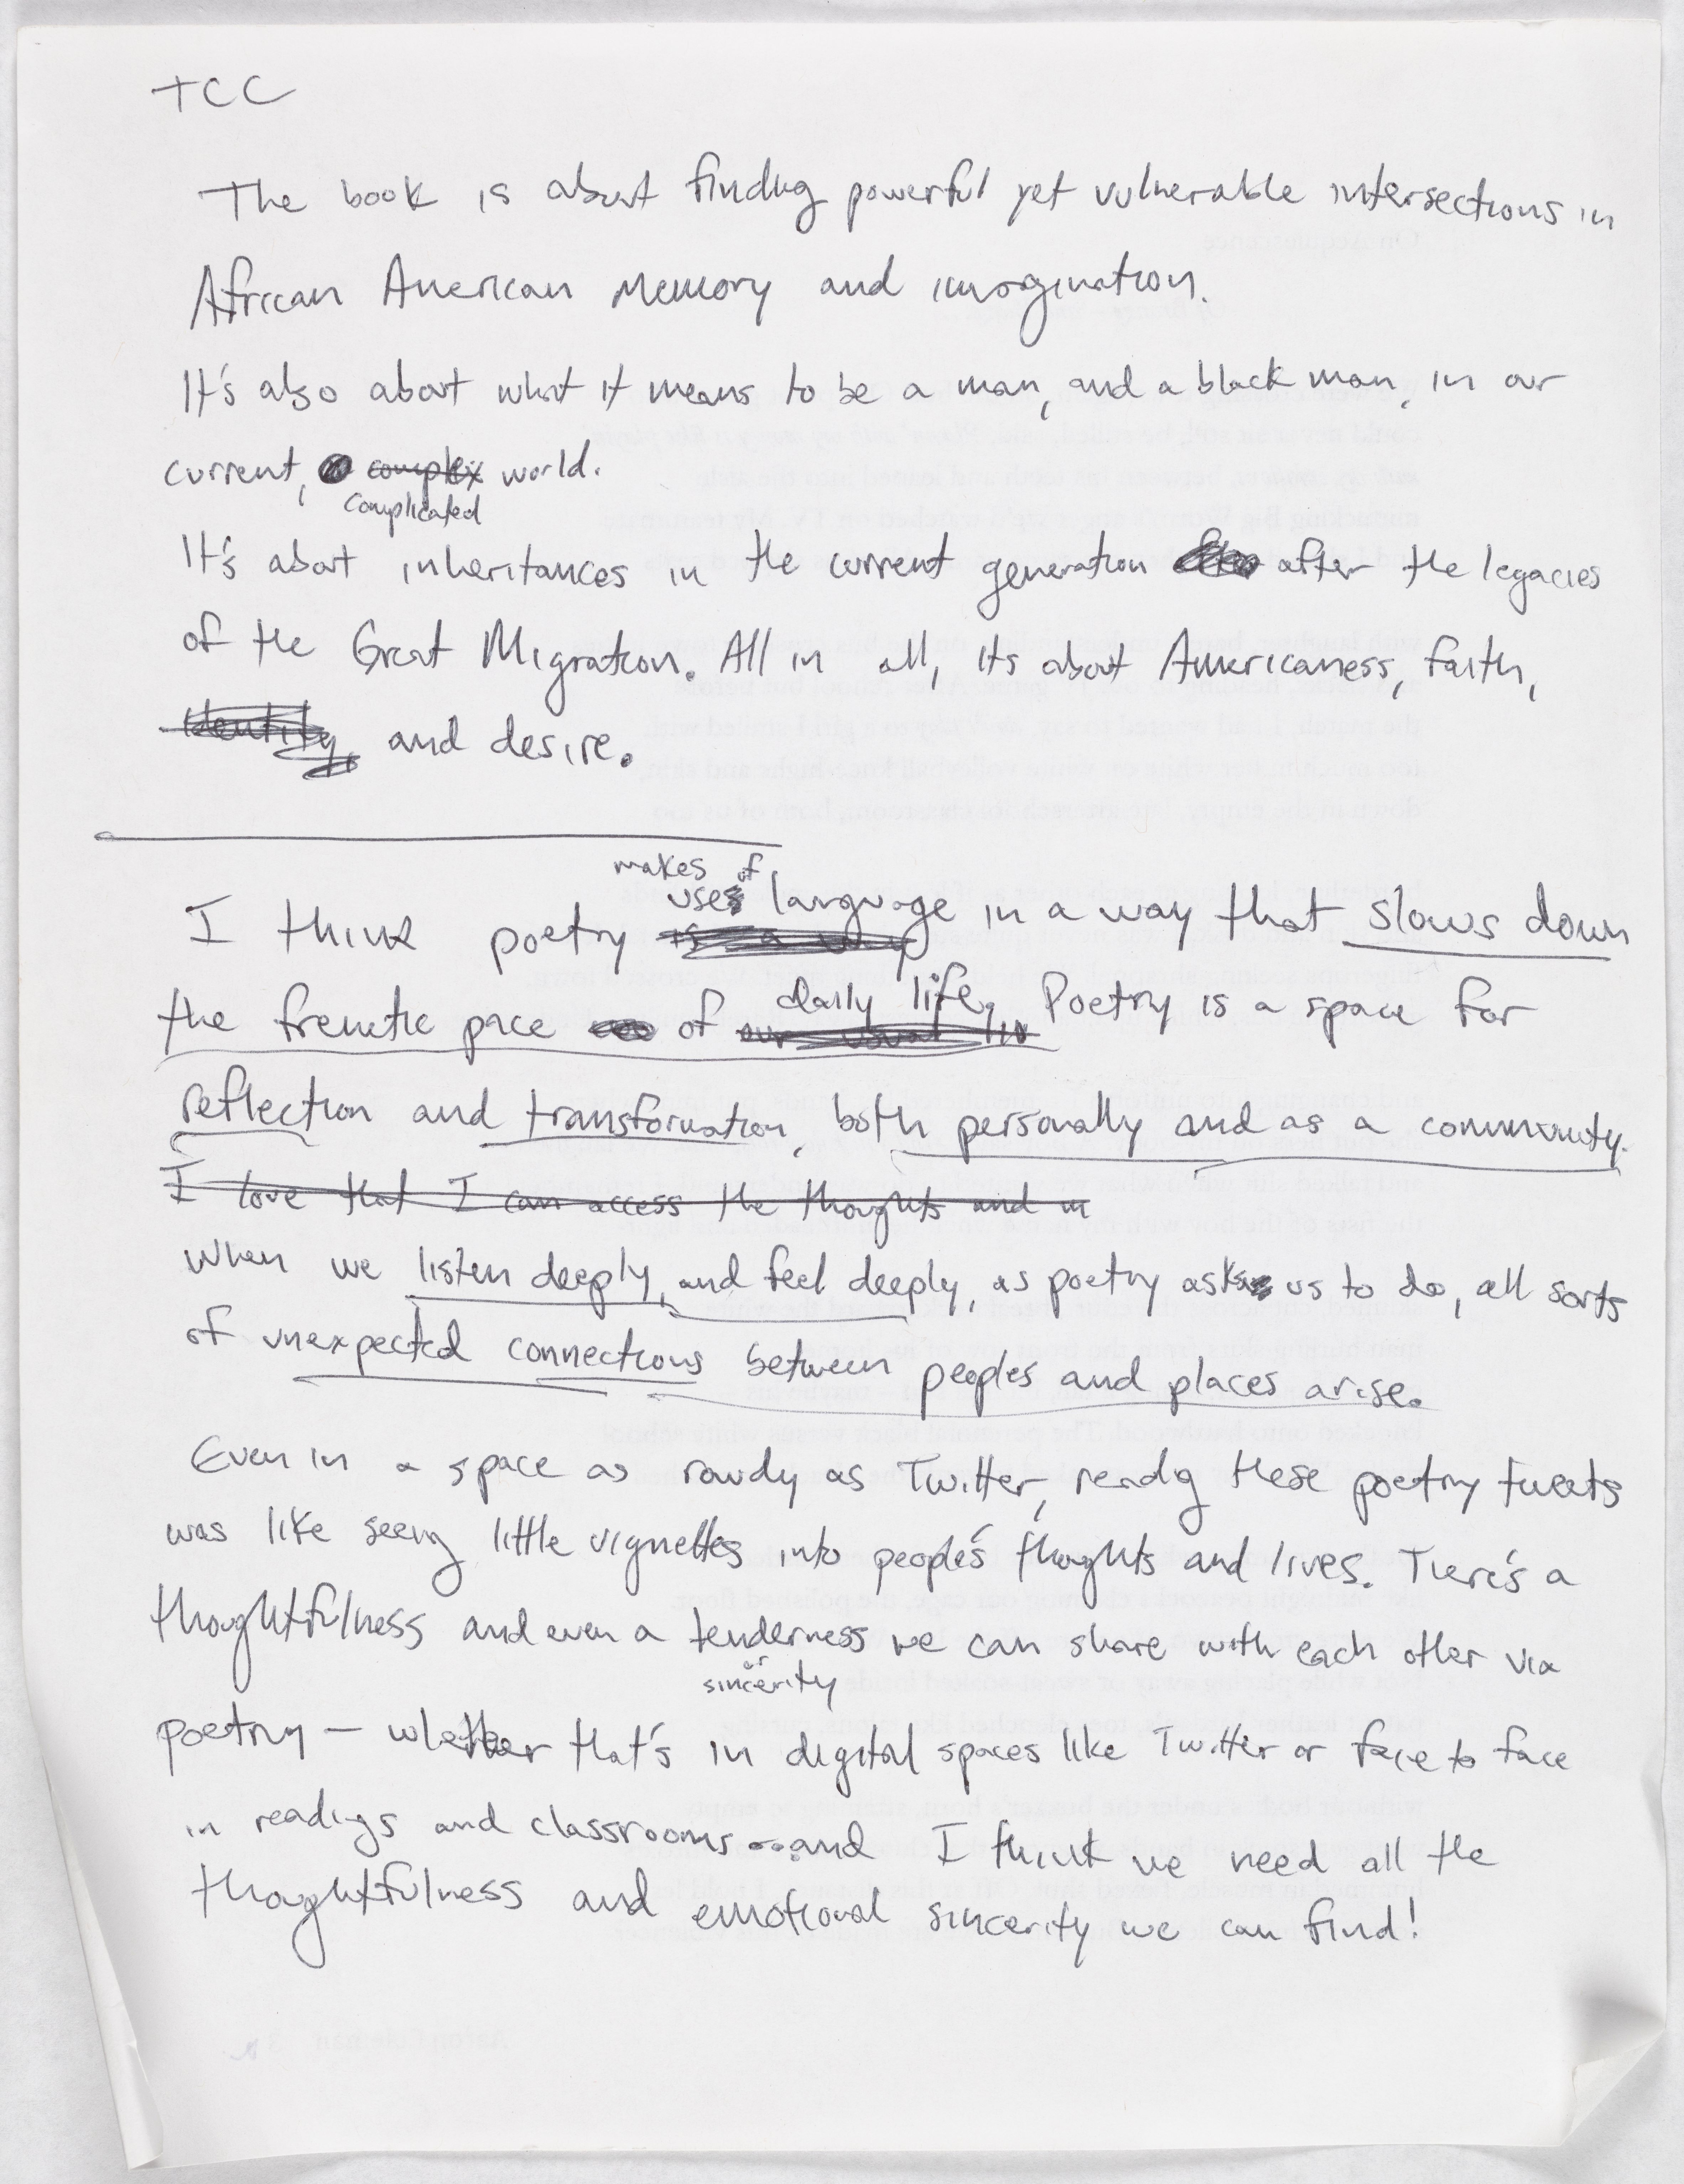 TCC
The book is about finding powerful yet vulnerable intersections in
African American Memory and imagination.
It's also about what it means to be a man, and a black man, in our
current, complex world.
complicated
It's about inheritances in the current generation after the legacies
of the Great Migration. All in all, its about Americaness, faith,
identity, and desire.
makes of
uses language in a way that slows down
I think poetry is a way
the frenetic pace of daily life. Poetry is a space for
our usual
reflection and transformation, both personally and as a community.
I love that I can access the thoughts and in
When we listen deeply, and feel deeply, as poetry asks us to do, all sorts
of unexpected connections between peoples and places arise.
Even in a space as rowdy as Twitter, readig these poetry tweets
was like seeing little vignettes into people's thoughts and lives. There's a
thoughtfulness and even a tenderness we can share with each other via
or
sincerity
poetry — whether that's in digital spaces like Twitter or face to face
in readings and classrooms... and I think we need all the
thoughtfulness and emotional sincerity we can find!